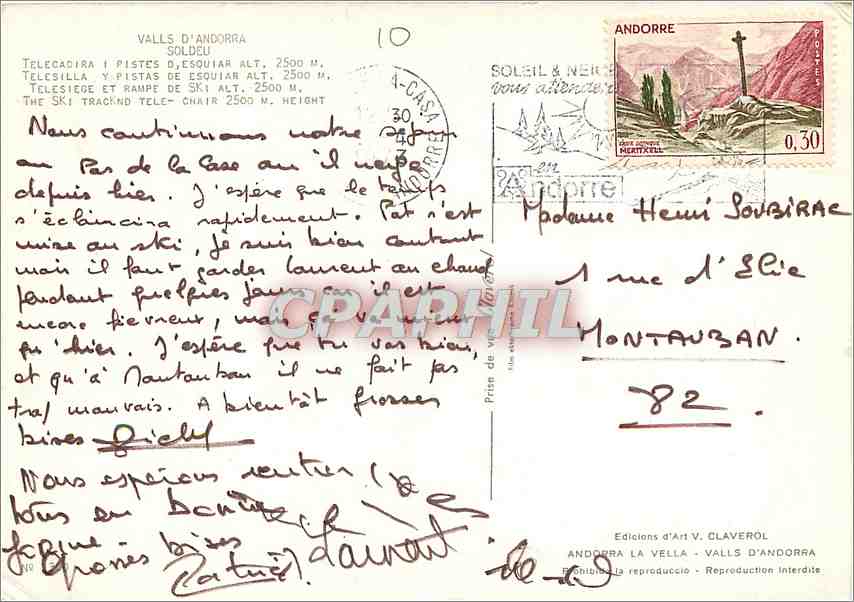 VALLS D'ANDORRA
SOLDEU
TELECADIRA I PISTES D,ESQUIAR ALT. 2500 M.
TELESILLA Y PISTAS DE ESQUIAR ALT. 2500 M.
TELESIEGE ET RAMPE DE SKI ALT. 2500 M.
THE SKI TRACKND TELE-CHAIR 2500 M. HEIGHT
10
Nous continuons notre séjour
au Pas de la Case où il neige
depuis hier. J'espère que le temps
s'éclaircira rapidement. Pat s'est
mise au ski, je suis bien contant
mais il faut garder Laurent au chaud
pendant quelques jours car il est
encore fievreux, mais ça va mieux
qu'hier. J'espère que tu vas bien,
et qu'à Montauban il ne fait pas
trop mauvais. A bientôt Grosses
bises
Nous espérons rentrer
tous en bonne
forme.
Grosses bises
Laurent
A-CASA
30
4
ANDORRE
SOLEIL & NEIGE
vous attendent
en
Andorre
ANDORRE
POSTES
CROIX GOTHIQUE
MERITXELL
0,30
Madame Henri SOUBIRAC
1 rue d'Elie
MONTAUBAN.
82.
Prise de vue Claverol
CPARPHIL
Edicions d'Art V. CLAVEROL
ANDORRA LA VELLA - VALLS D'ANDORRA
Prohibida la reproducció - Reproduction Interdite